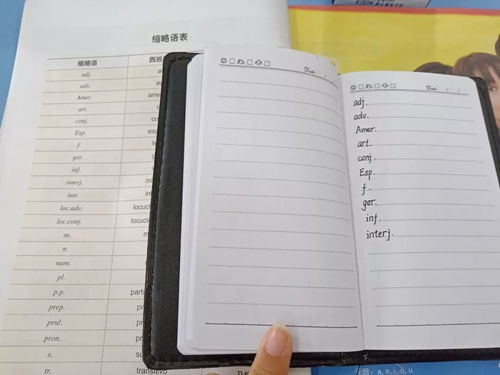 缩略语表
缩略语
adj.
adv.
Amer.
art.
conj.
Esp.
f.
ger.
inf.
interj.
intr.
loc.adv. locuc
loc.conj. locuci
m.
n.
num.
pl.
p.p. part
prep.
prnl.
pron.
s.
tr. transitivo
Date
Date
adj
adv.
Amer.
art.
conj.
Esp.
f.
ger.
inf.
interj.
a, e, i, o, u